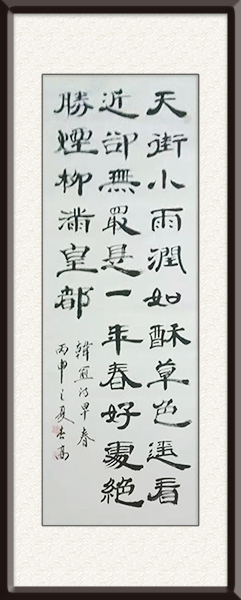 天街小雨潤如酥草色遥看
近卻無最是一年春好處絕
勝煙柳滿皇都
韓愈诗早春
丙申之夏